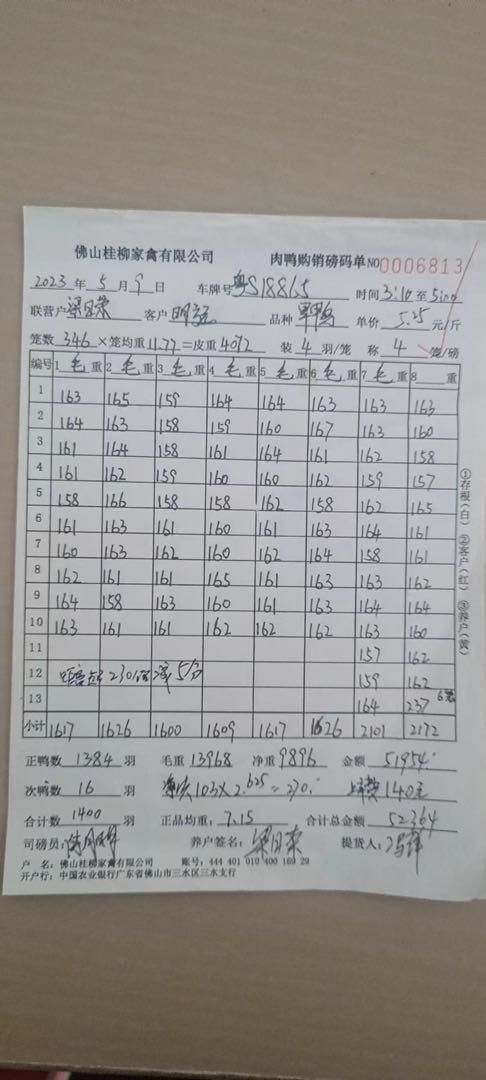 佛山桂柳家禽有限公司 肉鸭购销磅码单 NO 0006813
2023 年 5 月 9 日 车牌号 粤S18865 时间 3:10 至 5:00
联营户 梁日荣 客户 品种 单价 5.25 元/斤
笼数 346 ×笼均重 11.77 =皮重 4072 装 4 羽/笼 称 4 笼/磅
编号 1 毛 重 2 毛 重 3 毛 重 4 毛 重 5 毛 重 6 毛 重 7 毛 重 8 重
1 163 165 159 164 164 163 163 163
2 164 163 158 159 160 167 163 160
3 161 164 158 161 164 161 162 158
4 161 162 159 160 160 162 159 157
5 158 166 158 158 162 158 162 165
6 161 163 161 160 161 163 164 161
7 160 163 162 160 162 164 158 161
8 162 161 161 165 161 163 163 162
9 164 158 163 160 161 163 164 164
10 163 161 161 162 162 162 163 160
11 157 162
12 230 减 5分 159 162
13 164 237 6笼
小计 1617 1626 1600 1609 1617 1626 2101 2172
正鸭数 1384 羽 毛重 13968 净重 9896 金额 51954.
次鸭数 16 羽 103×2.625=270. 140元
合计数 1400 羽 正品均重: 7.15 合计总金额 52364
司磅员: 养户签名: 梁日荣 提货人: 冯锋
户 名: 佛山桂柳家禽有限公司 账号: 444 401 010 400 169 29
开户行: 中国农业银行广东省佛山市三水区三水支行
①存根(白) ②客户(红) ③养户(黄)